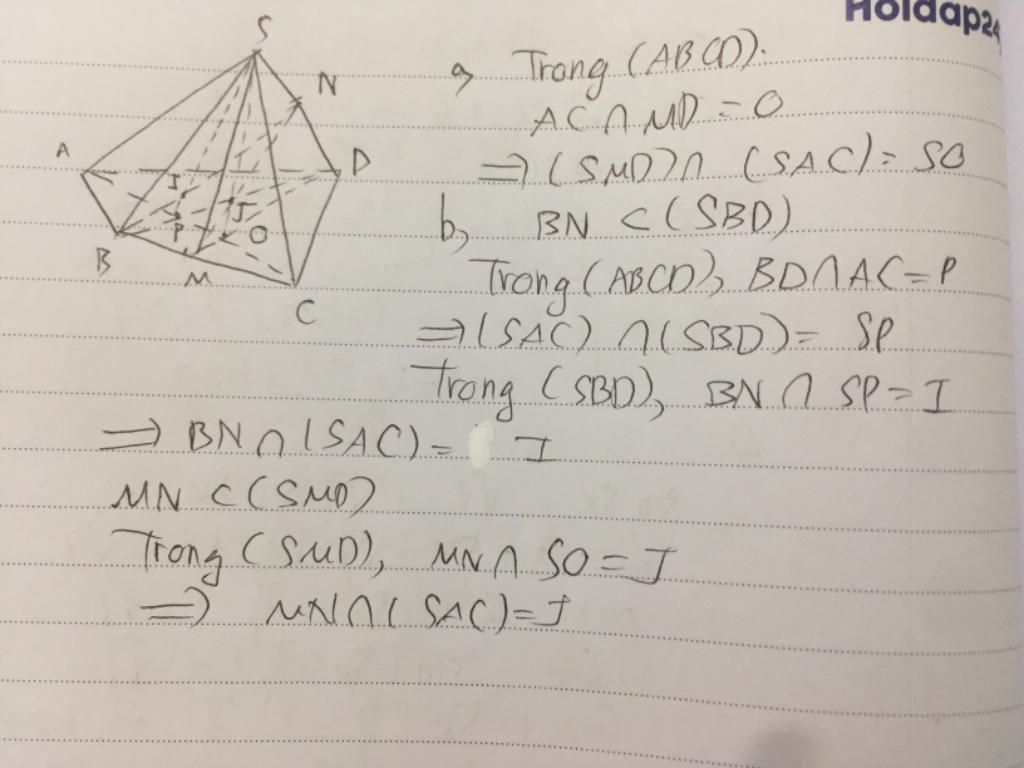 Hoidap24
S
N
A
D
I
J
P
O
B
M
C
a, Trong (ABCD):
AC ∩ MD = O
⇒ (SMD) ∩ (SAC) = SO
b, BN ⊂ (SBD)
Trong (ABCD), BD ∩ AC = P
⇒ (SAC) ∩ (SBD) = SP
Trong (SBD), BN ∩ SP = I
⇒ BN ∩ (SAC) = I
MN ⊂ (SMD)
Trong (SMD), MN ∩ SO = J
⇒ MN ∩ (SAC) = J